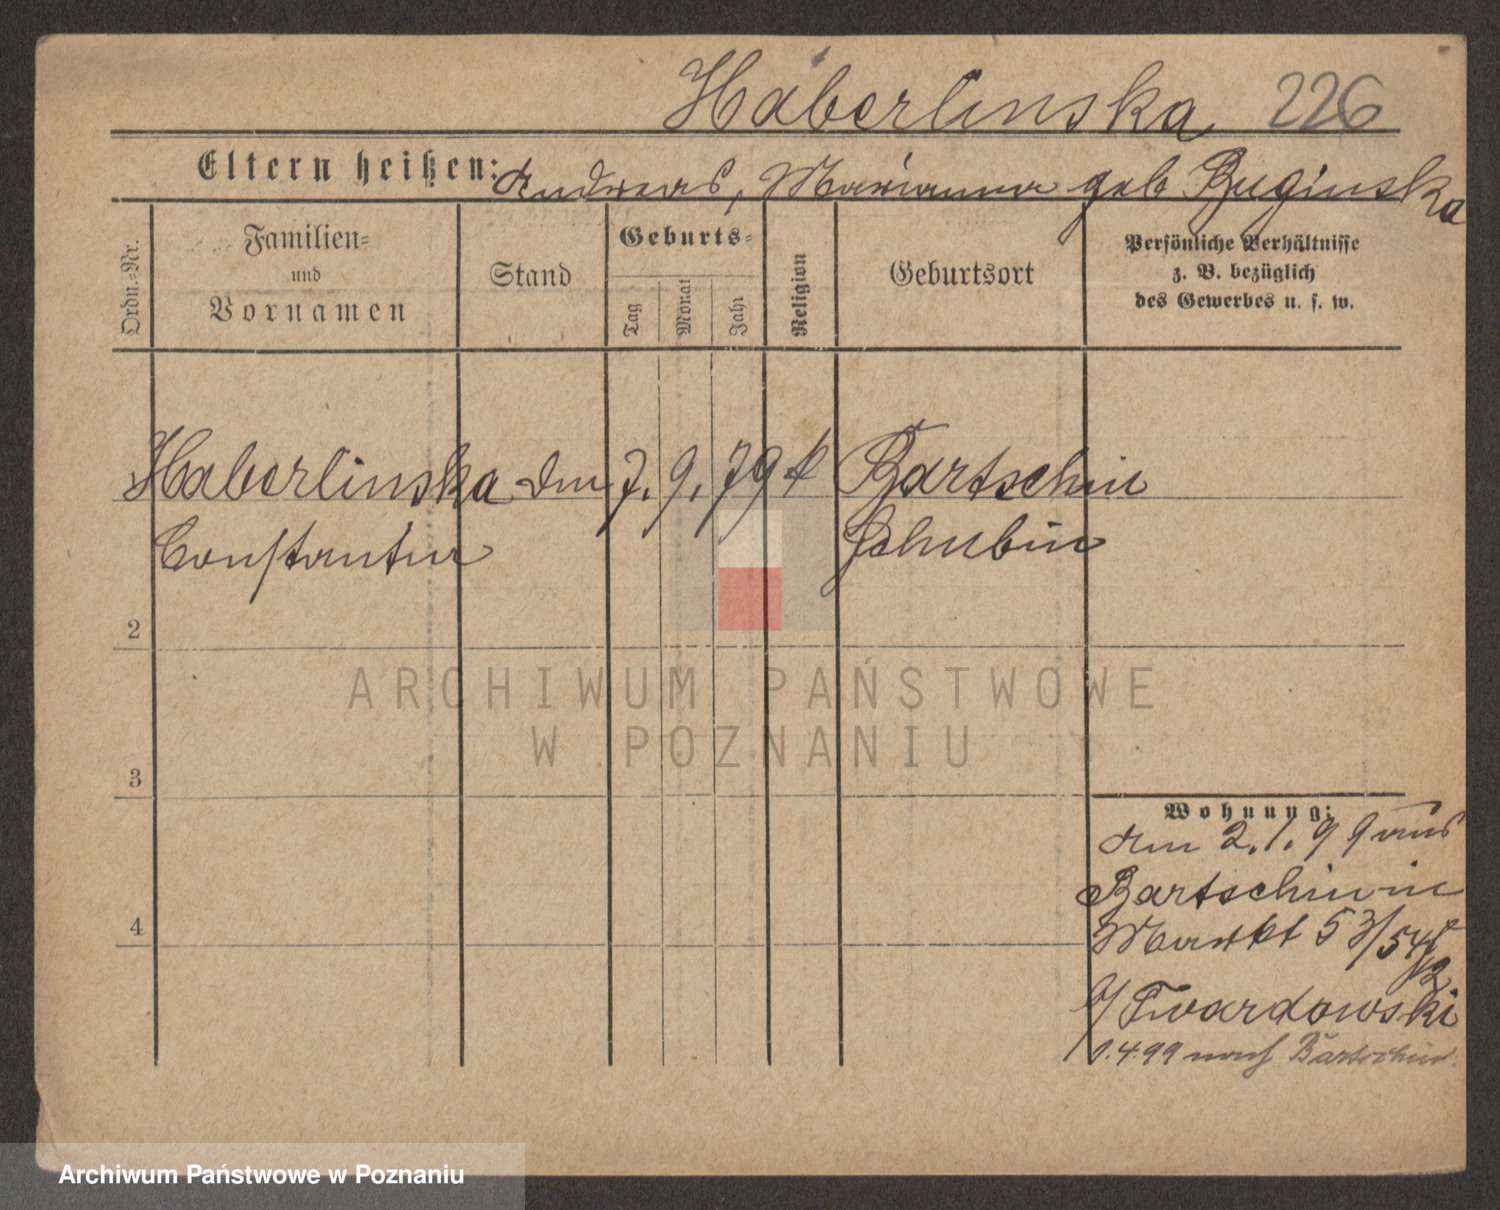 Haberlinska 226
Eltern heißen: Andreas, Marianna geb Buginska
Ordn.-Nr.
Familien-
und
Vornamen
Stand
Geburts-
Tag
Monat
Jahr
Religion
Geburtsort
Persönliche Verhältnisse
z. B. bezüglich
des Gewerbes u. s. w.
Haberlinska 7. 9. 79 k Bartschin
Constantia Schubin
2
3
4
Wohnung:
am 2. 1. 99 aus
Bartschin in
Markt 53/54
b/ Twardowski
1.4.99 nach Bartschin
ARCHIWUM PAŃSTWOWE
W POZNANIU
Archiwum Państwowe w Poznaniu